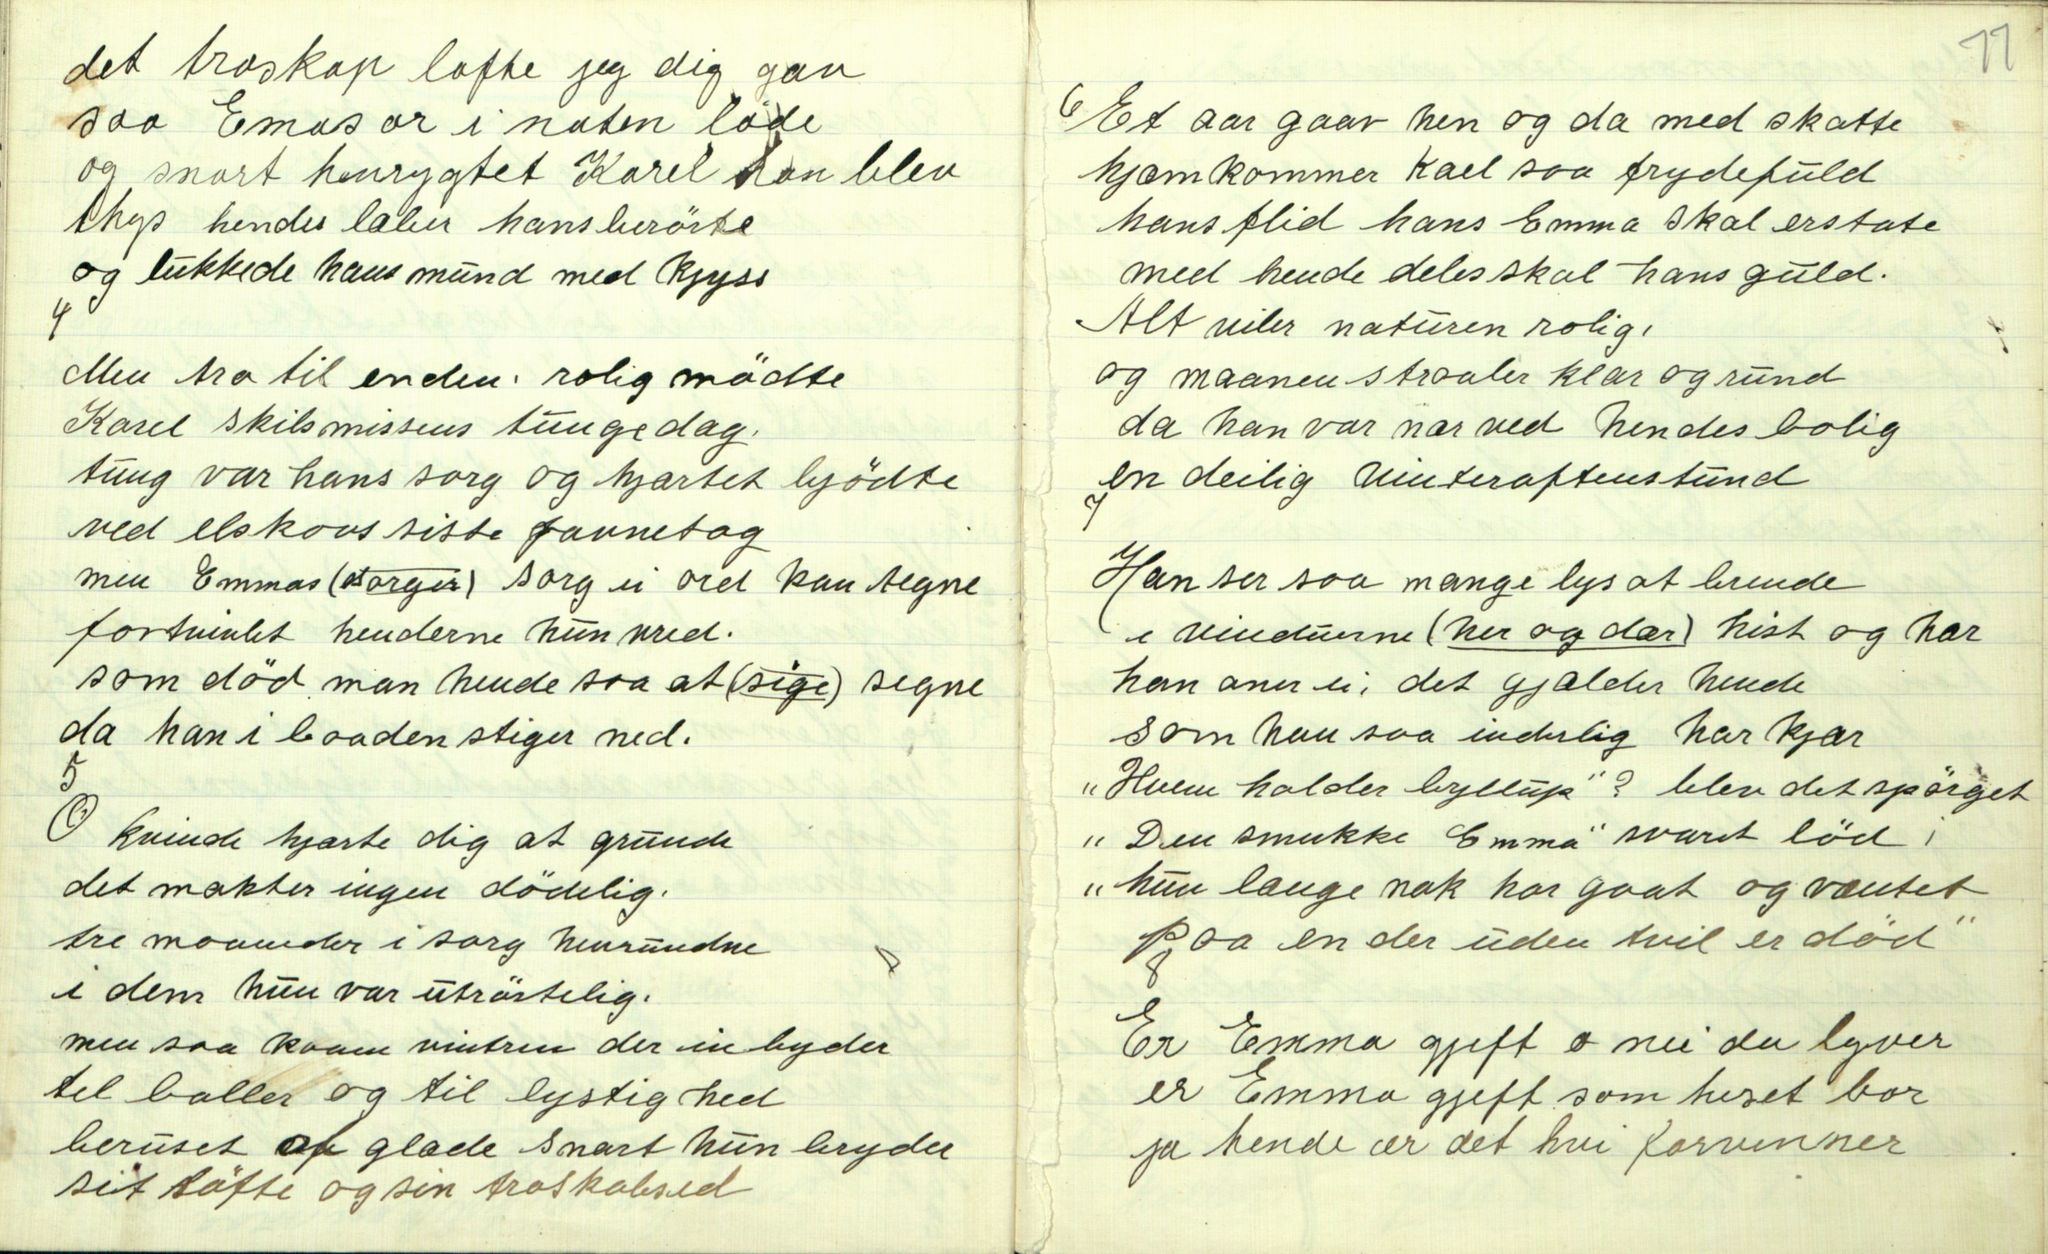 det troskap løfte jeg dig gav
saa Emas or i naten löde
og snart henrygtet Karel han blev
thys hendes læber hans berörte
og lukkede hans mund med kjyss
4
Men tro til enden. rolig mödte
Karel skilsmissens tunge dag.
tung var hans sorg og hjærtet byödte
ved elskovs siste favnetag
men Emmas (sorger) sorg ei ord kan tegne
fortvivlet henderne hun vred.
som död man hende saa at (sige) segne
da han i baaden stiger ned.
5
O kvinde hjærte dig at grunde
det makter ingen dödelig.
tre maaneder i sorg henrundne
i dem hun var utröstelig.
men saa kaam vintren der in byder
tel baller og til lystig hed
beruset af glæde snart hun bryder
sit töfte og sin troskabsed
11
6 Et aar gaav hen og da med skatte
hjæmkommer Kael saa frydefuld
hans flid hans Emma skal erstate
med hende deles skal hans guld.
Alt viler naturen rolig,
og maanen straaler klar og rund
da han var nær ved hendes bolig
en deilig vinteraftenstund
7
Han ser saa mange lys at brende
i vinduerne (her og dær) hist og hær
han aner ei, det gjælder hende
som han saa inderlig har kjær
"Hvem halder bryllup"? blev det spörget
"Den smukke Emma" svaret löd i
"hun længe nok har gaat og væntet
paa en der uden tvil er död"
8
Er Emma gjeft o nei du lyver
er Emma gjeft som huset bor
ja hende ær det hvi forvenner